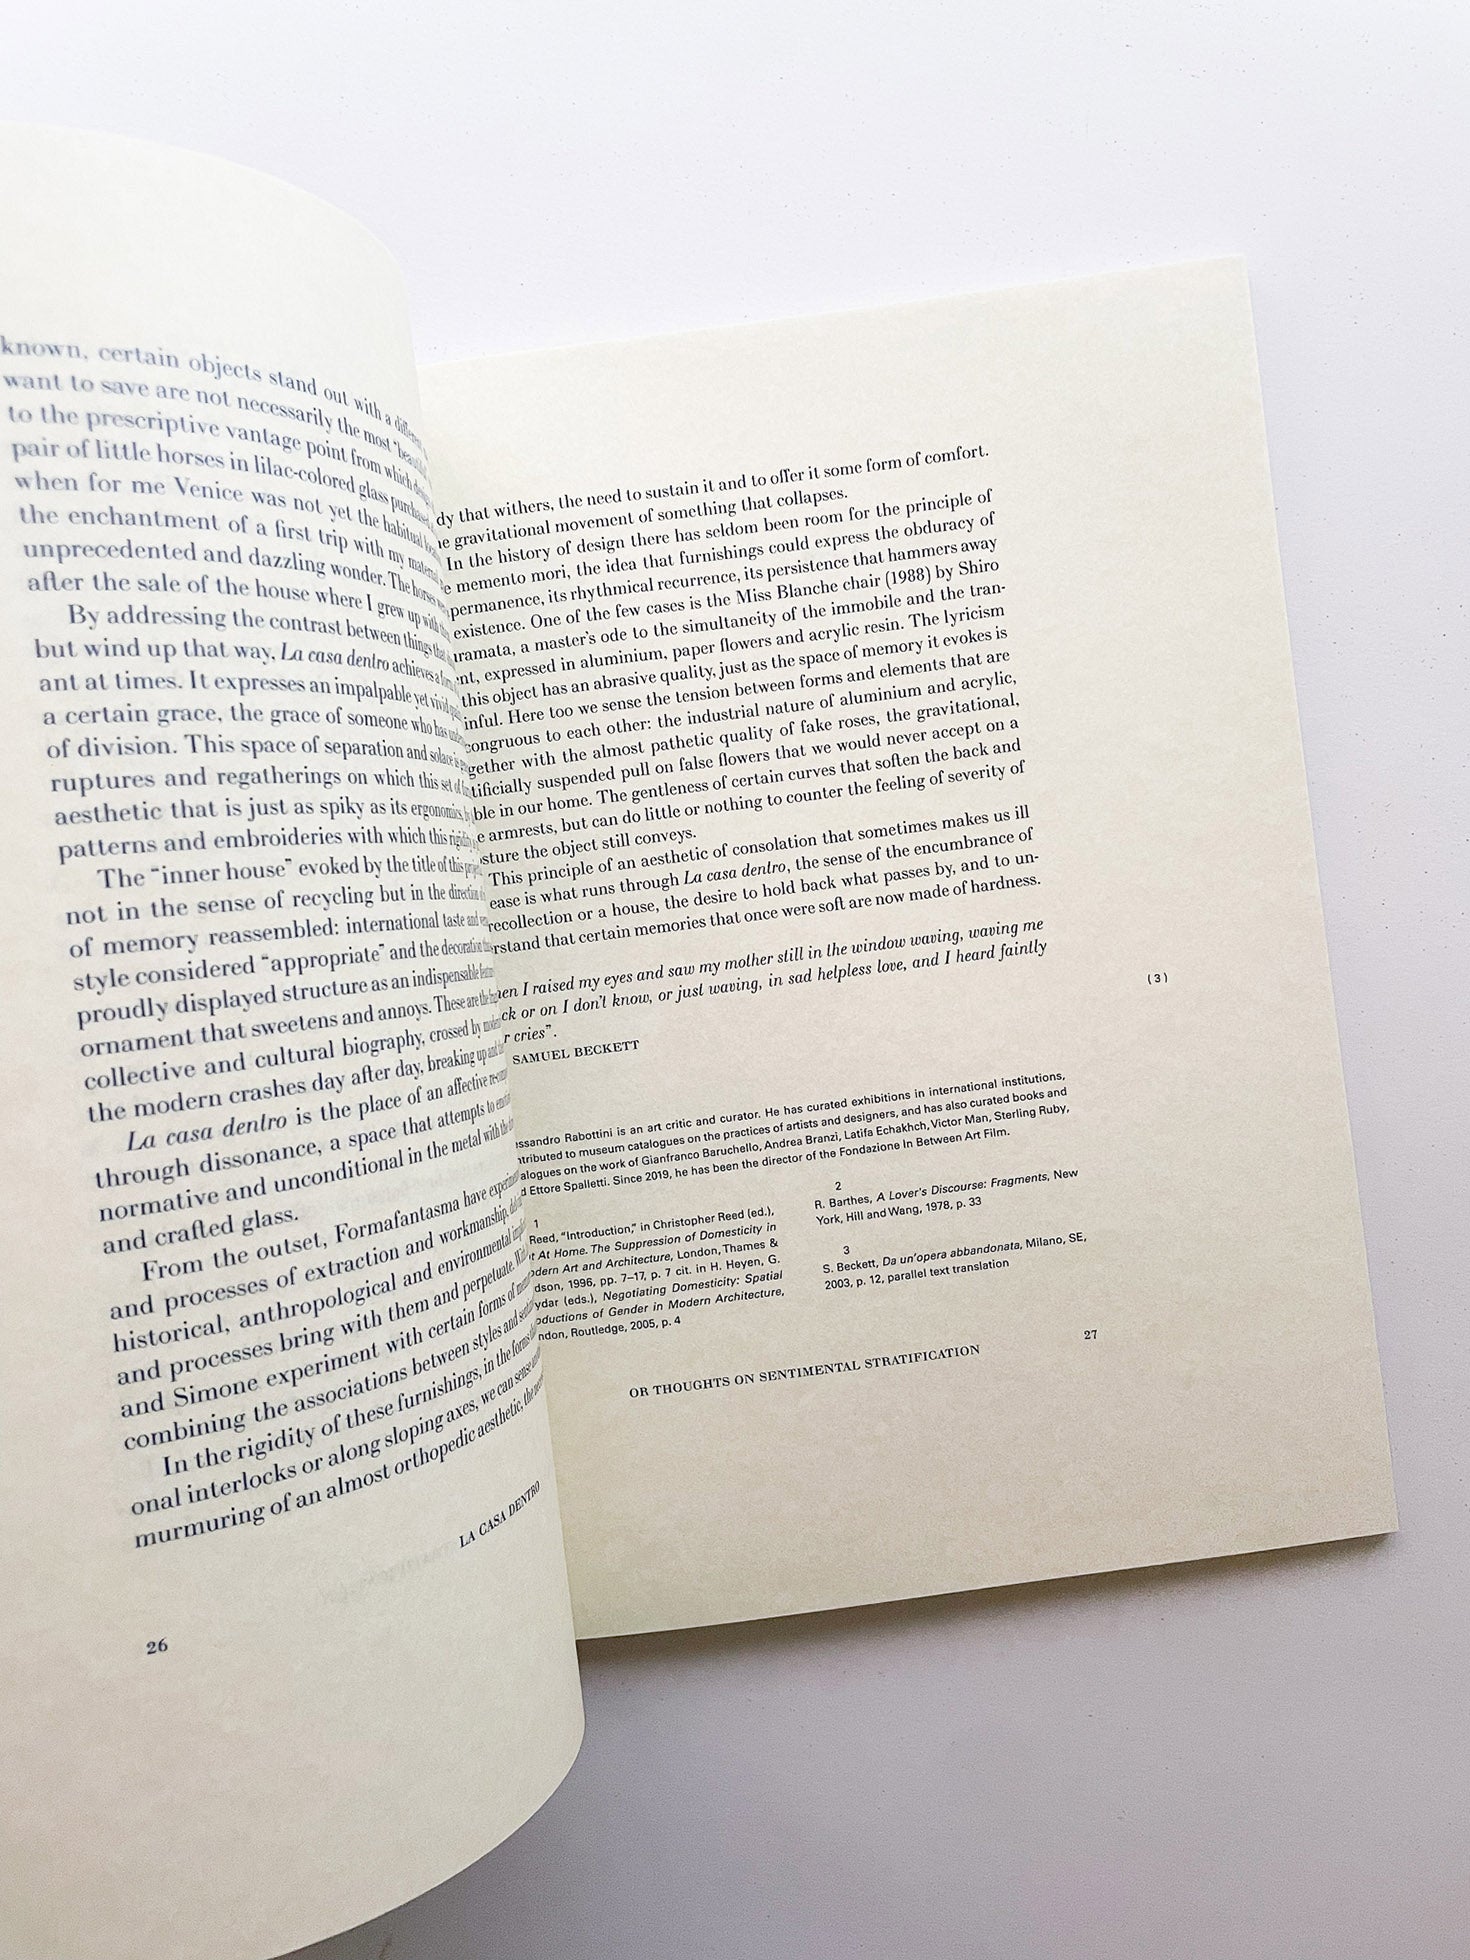 known, certain objects stand out with a
want to save are not necessarily the most
to the prescriptive vantage point from which
pair of little horses in lilac-colored glass purchased
when for me Venice was not yet the habitual
the enchantment of a first trip with my
unprecedented and dazzling wonder. The horses
after the sale of the house where I grew up with
By addressing the contrast between things that
but wind up that way, La casa dentro achieves a
ant at times. It expresses an impalpable yet vivid
a certain grace, the grace of someone who has
of division. This space of separation and solace is
ruptures and regatherings on which this set of
aesthetic that is just as spiky as its ergonomics,
patterns and embroideries with which this
The “inner house” evoked by the title of this
not in the sense of recycling but in the direction
of memory reassembled: international taste and
style considered “appropriate” and the decoration
proudly displayed structure as an indispensable
ornament that sweetens and annoys. These are the
collective and cultural biography, crossed by
the modern crashes day after day, breaking up and
La casa dentro is the place of an affective
through dissonance, a space that attempts to
normative and unconditional in the metal with the
and crafted glass.
From the outset, Formafantasma have
and processes of extraction and workmanship,
historical, anthropological and environmental
and processes bring with them and perpetuate.
and Simone experiment with certain forms of
combining the associations between styles and
In the rigidity of these furnishings, in the forms
onal interlocks or along sloping axes, we can sense
murmuring of an almost orthopedic aesthetic, the
LA CASA DENTRO
26
dy that withers, the need to sustain it and to offer it some form of comfort.
e gravitational movement of something that collapses.
In the history of design there has seldom been room for the principle of
e memento mori, the idea that furnishings could express the obduracy of
permanence, its rhythmical recurrence, its persistence that hammers away
existence. One of the few cases is the Miss Blanche chair (1988) by Shiro
uramata, a master’s ode to the simultaneity of the immobile and the tran-
nt, expressed in aluminium, paper flowers and acrylic resin. The lyricism
this object has an abrasive quality, just as the space of memory it evokes is
inful. Here too we sense the tension between forms and elements that are
congruous to each other: the industrial nature of aluminium and acrylic,
gether with the almost pathetic quality of fake roses, the gravitational,
tificially suspended pull on false flowers that we would never accept on a
ble in our home. The gentleness of certain curves that soften the back and
e armrests, but can do little or nothing to counter the feeling of severity of
sture the object still conveys.
This principle of an aesthetic of consolation that sometimes makes us ill
ease is what runs through La casa dentro, the sense of the encumbrance of
recollection or a house, the desire to hold back what passes by, and to un-
rstand that certain memories that once were soft are now made of hardness.
en I raised my eyes and saw my mother still in the window waving, waving me
ck or on I don’t know, or just waving, in sad helpless love, and I heard faintly
r cries”.
(3)
SAMUEL BECKETT
ssandro Rabottini is an art critic and curator. He has curated exhibitions in international institutions,
ntributed to museum catalogues on the practices of artists and designers, and has also curated books and
alogues on the work of Gianfranco Baruchello, Andrea Branzi, Latifa Echakhch, Victor Man, Sterling Ruby,
d Ettore Spalletti. Since 2019, he has been the director of the Fondazione In Between Art Film.
1
Reed, “Introduction,” in Christopher Reed (ed.),
t At Home. The Suppression of Domesticity in
odern Art and Architecture, London, Thames &
dson, 1996, pp. 7–17, p. 7 cit. in H. Heyen, G.
ydar (eds.), Negotiating Domesticity: Spatial
oductions of Gender in Modern Architecture,
ndon, Routledge, 2005, p. 4
2
R. Barthes, A Lover’s Discourse: Fragments, New
York, Hill and Wang, 1978, p. 33
3
S. Beckett, Da un’opera abbandonata, Milano, SE,
2003, p. 12, parallel text translation
OR THOUGHTS ON SENTIMENTAL STRATIFICATION
27